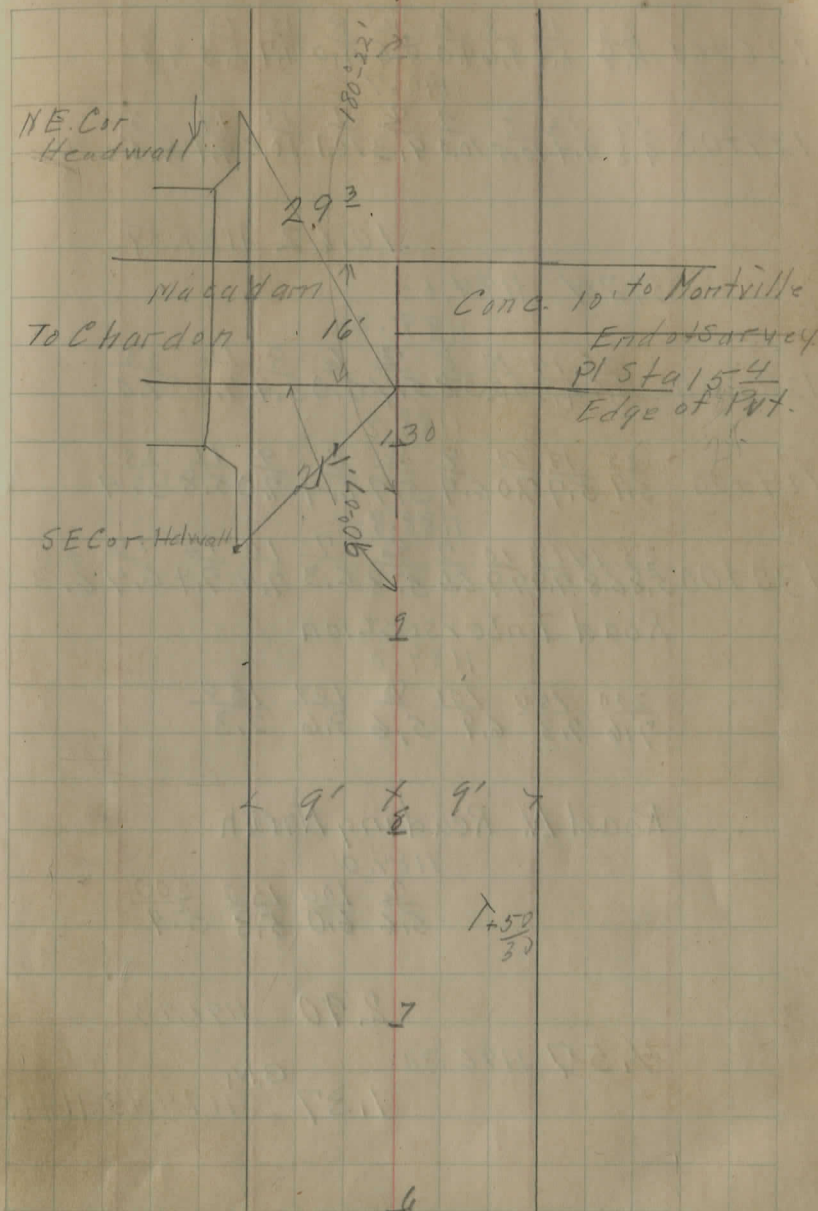 180°-22'
N.E. Cor
Headwall
29 3
Macadam
Conc. 10' to Montville
To Chardon
16'
End of Survey
PI Sta 15 4
Edge of Pvt.
130
21
90°-07'
S E Cor. Hdwall
9
9' 8 9'
+50
30
7
6